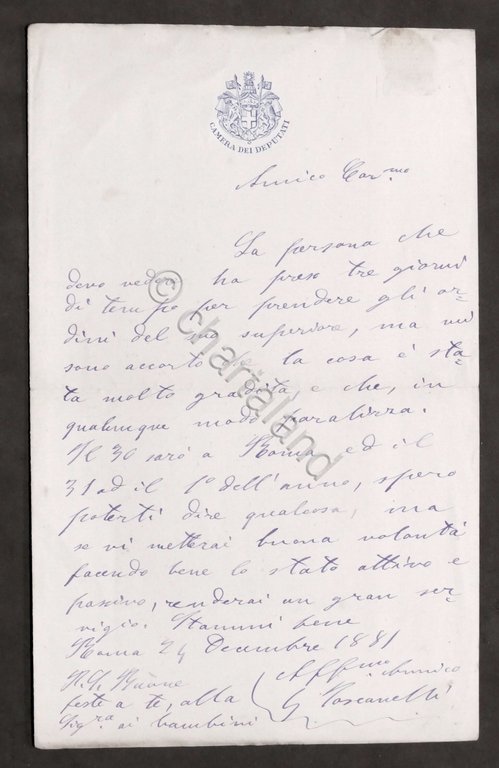 CAMERA DEI DEPUTATI
Amico Car.mo
La persona che
devo vedere ha preso tre giorni
di tempo per prendere gli or-
dini del suo superiore, ma mi
sono accorto che la cosa è sta-
ta molto gradita, e che, in
qualunque modo paralizza.
Il 30 sarò a Roma ed il
31 ad il 1º dell'anno, spero
poterti dire qualcosa, ma
se vi metterai buona volontà
facendo bene lo stato attivo e
passivo, renderai un gran ser-
vigio. Stammi bene
Roma 24 Decembre 1881
P.S. Buone
feste a te, alla
Sig.ra ai bambini
Aff.mo Amico
G Toscanelli
© chartaland